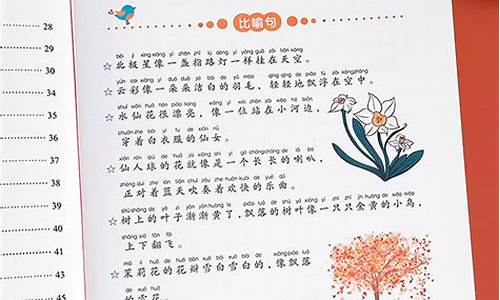 比喻句
běi jí xīng xiàng yì zhǎn zhǐ lù dēng yí yàng guà zài tiān kōng
☆北极星像一盏指路灯一样挂在天空。
yún cai xiàng yì duǒ duǒ jié bái de yǔ máo qīng qīng de piāo fú zài kōng zhōng
☆云彩像一朵朵洁白的羽毛，轻轻地飘浮在空中。
shuǐ xiān huā hěn piào liang xiàng yí wèi zhàn zài xiǎo hé biān
☆水仙花很漂亮，像一位站在小河边，
chuān zhe bái yī fu de xiān nǚ
穿着白衣服的仙女。
xiān rén qiú de huā jiù xiàng shì yí gè cháng cháng de lǎ ba
☆仙人球的花就像是一个长长的喇叭，
zhèng duì zhe lán tiān chuī zòu zhe huān kuài de yuè qǔ
正对着蓝天吹奏着欢快的乐曲。
shù shàng de yè zi jiàn jiàn huáng le piāo luò de shù yè xiàng yì zhī zhī jīn huáng de xiǎo niǎo
☆树上的叶子渐渐黄了，飘落的树叶像一只只金黄的小鸟，
shàng xià fān fēi
上下翻飞。
mò lì huā de huā bàn xuě bái xuě bái de xiàng piāo luò
☆茉莉花的花瓣雪白雪白的，像飘落
的雪花。
28
34
35
36
38
39
41
45